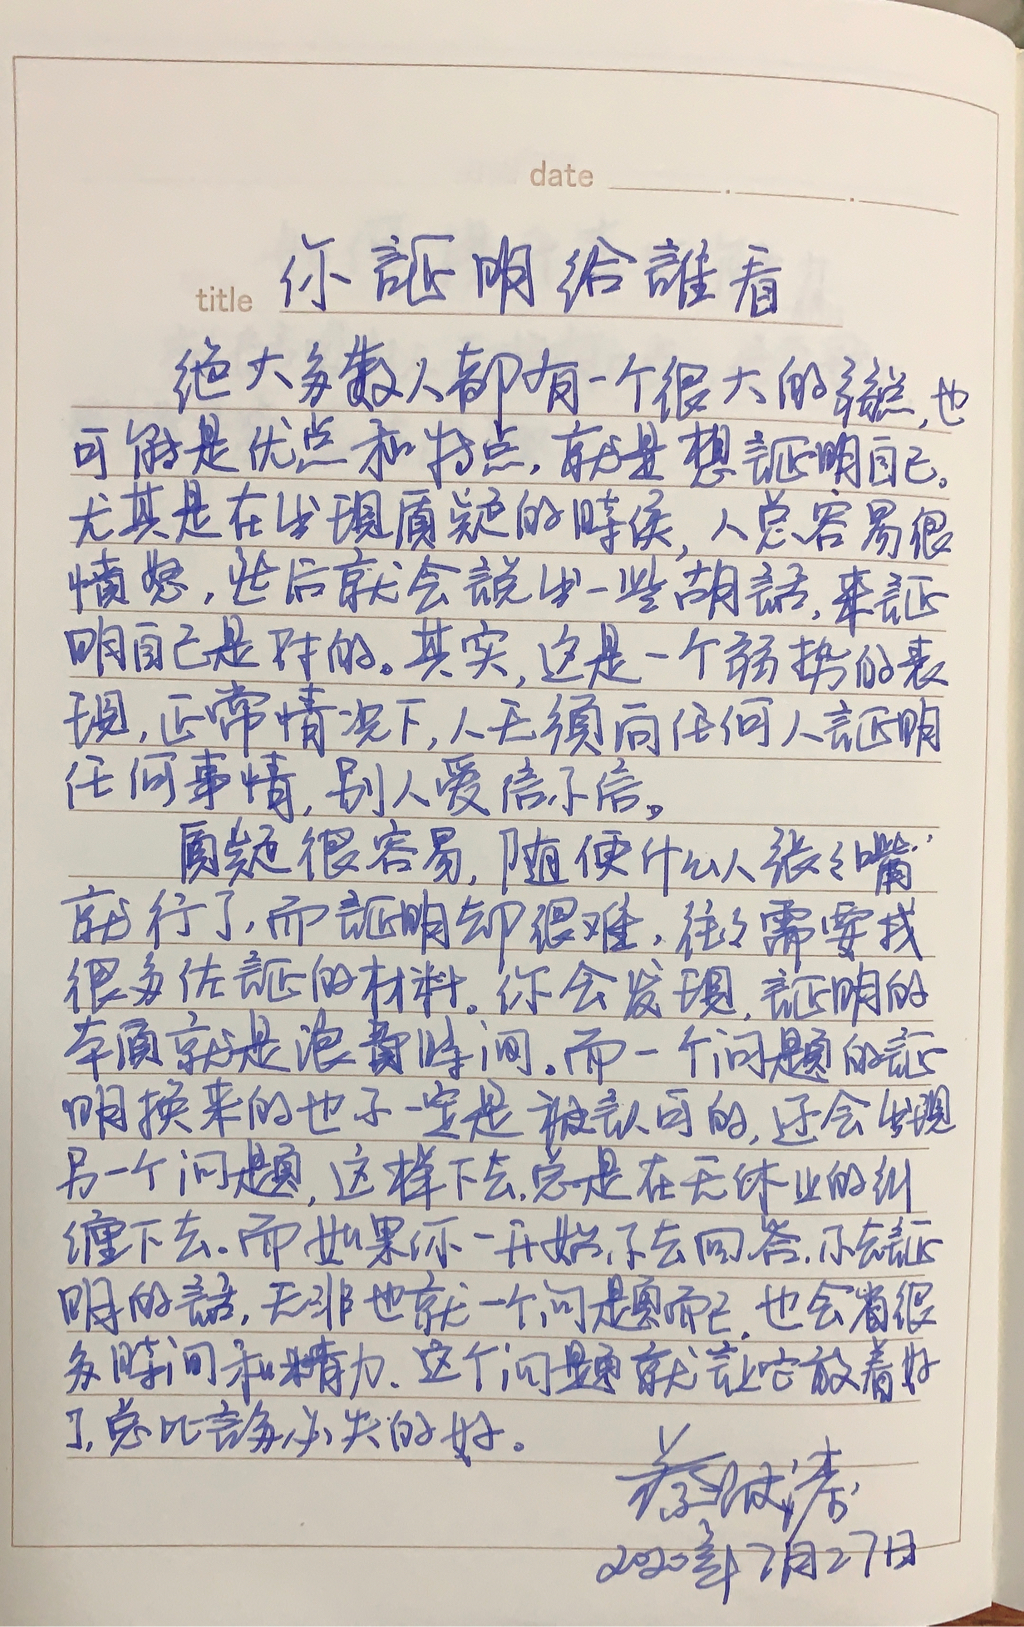 date
title 你証明給誰看
绝大多数人都有一个很大的弱點,也
可能是优点和特点,就是想証明自己。
尤其是在出現質疑的時侯,人总容易很
憤怒,然后就会説出一些胡話,來証
明自己是对的。其实,这是一个弱势的表
現,正常情况下,人无須向任何人証明
任何事情,别人爱信不信。
質疑很容易,随便什么人張張嘴
就行了,而証明却很难,往往需要找
很多佐証的材料。你会发現,証明的
本質就是浪費時间。而一个问题的証
明换来的也不一定是被認可的,还会出現
另一个问题,这样下去,总是在无休止的糾
缠下去。而如果你一开始不去回答,不去証
明的話,无非也就一个问題而已,也会省很
多時间和精力,这个问題就讓它放着好
了,总比言多必失的好。
2020年7月27日